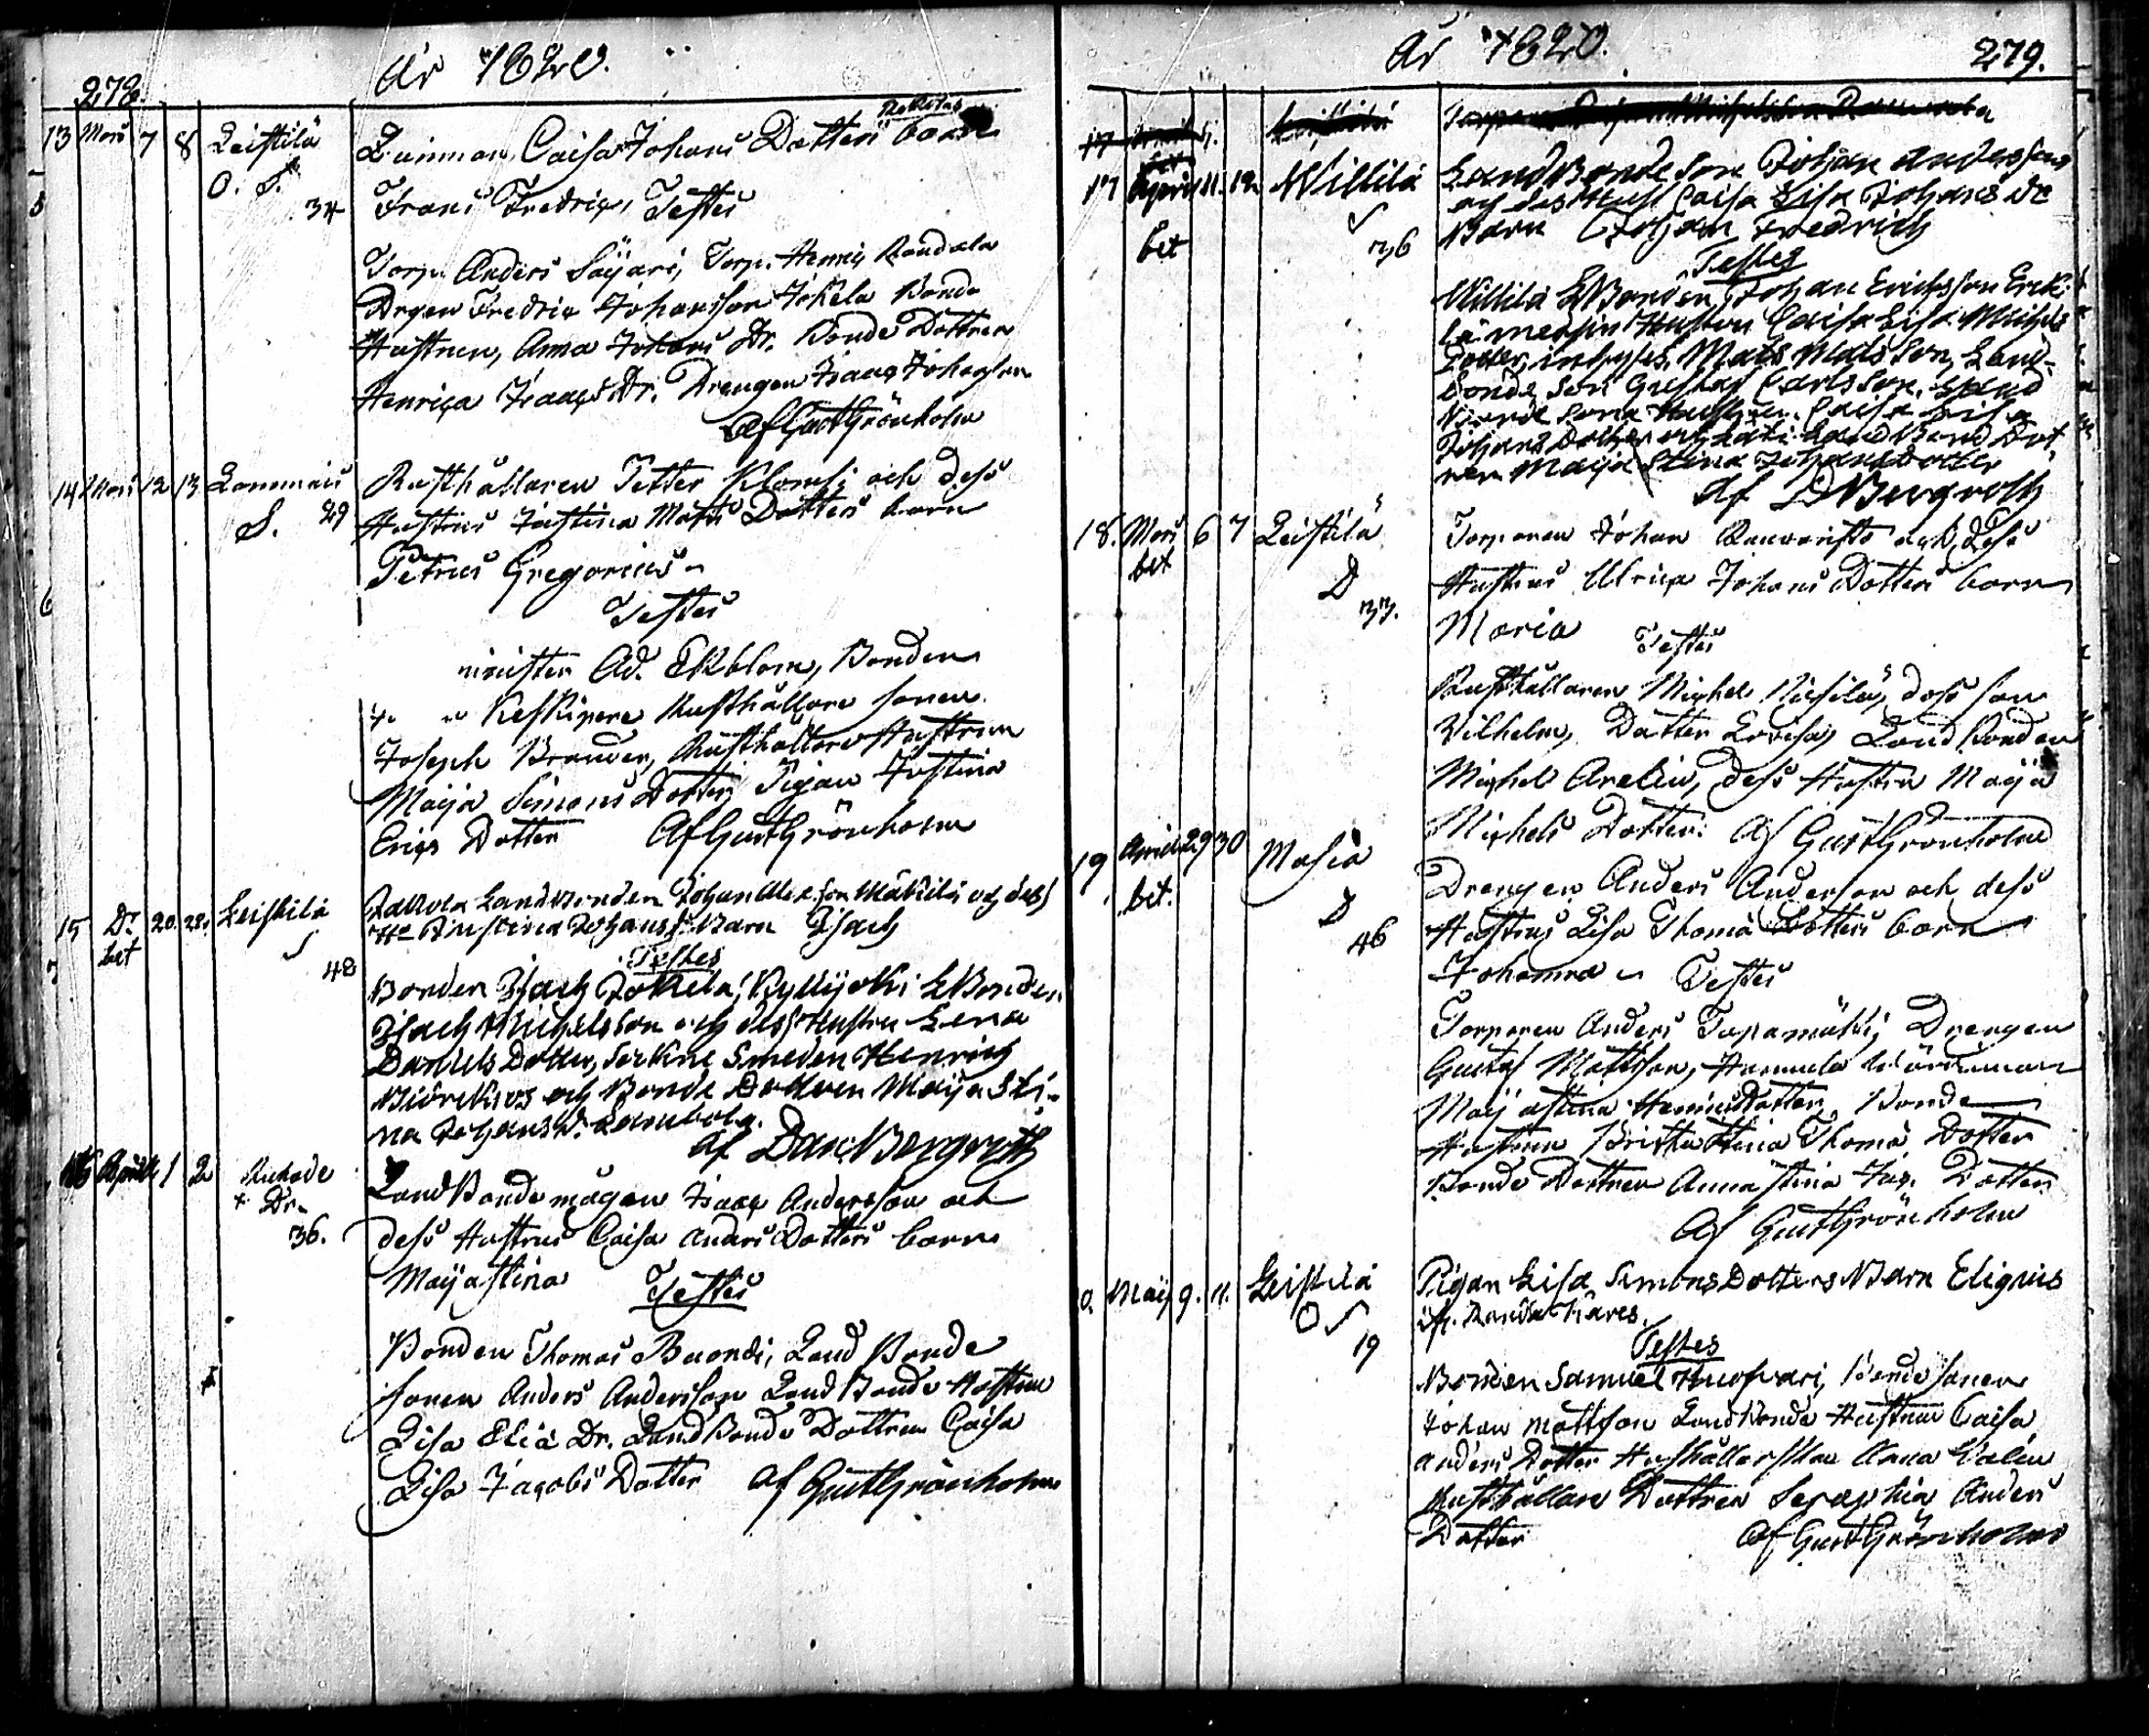 278.
År 1820.
13 Mars 7 8 Leistilä
Quinnan Caisa Johans Dotters barn
O. S.
34
Frans Fredric, Testes
Torp. Anders Säyari, Torp. Henric
Drgen Fredric Johansson Jokela Bonde
Hustrun, Anna Johans Dr. Bonde Dottren
Henrica Isaacs Dr. Drengen Isaac
Af Gust Grönholm
14 Mars 12 13 Lammais
Rusthållaren Petter Klomsi och dess
S. 29
Hustrus Justina Mats Dotters barn
Petrus Gregorius
Testes
Ad. Ekblom, Bonden
Keskipere Rusthållare sonen
Joseph Brander, Rusthållare Hustrun
Maija Simons Dotter, Pigan Justina
Erics Dotter Af Gust Grönholm
15 Dr 20. 28. Leistilä
LandBonden Johan och dess
bet
Johans barn Isach
48
Testes
Bonden Isach Jokela, Kyllijoki LBonden
Isach Michelsson och dess Hustru Lena
Daniels Dotter, Smeden Henrich
och Bonde Dottren Maija Sti-
na Johans Dr.
af Dan: Bergroth
16 April 1 2
LandBonde mågen Isaac Andersson och
Dr.
36.
dess Hustrus Caisa Anders Dotters barn
Maijastina Testes
Bonden Thomas Buondi, Land Bonde
sonen Anders Andersson Land Bonde Hustrun
Lisa Eliæ Dr. Land Bonde Dottren Caisa
Lisa Jacobs Dotter af Gust Grönholm
År 1820.
279.
17 April 11. 12. Willilä
LandBonde Son Johan Anderssons
och dess Hust Caisa Lisa Johans Dr
bet
36
Barn Johan Fredrich
Testes
Willilä LBonden, Johan Ericksson
med sin Hustru Caisa Lisa Michels
Dotter, inhyses Mats Matsson, Land-
bonde Son Gustaf Carlsson, Land
Bonde Sons Hustrun Caisa Lisa
Johans Dotter och LandBonde Dot
ren Maija Stina Johans Dotter
af D Bergroth
18. Mars 6 7 Leistilä
Torparen Johan och dess
bet
D
Hustrus Ulrica Johans Dotters barn
33.
Maria Testes
Rusthållaren Michel dess son
Vilhelm, Dotter Lovisa, Land Bonden
Michel Arelin, dess Hustru Maija
Michels Dotter. Af Gust Grönholm
19 April 29 30 Masia
Drengen Anders Andersson och dess
bet.
D
46
Hustrus Lisa Thomæ Dotters barn
Johanna Testes
Torparen Anders Tapamäki, Drengen
Gustaf Mattsson, Hannula
Maijastina Henrics Dotter, Bonde
Hustrun Britha Stina Thomæ Dotter
Bonde Dottren Annastina Jac. Dotter
Af Gust Grönholm
Maij 9. 11. Leistilä
Pigan Lisa Simons Dotters Barn Eligius
19
Testes
Bonden Samuel Huofvari, Bonde sonen
Johan Mattsson Land Bonde Hustrun Caisa
Anders Dotter Hushållerskan Anna
Rusthållare Dottren Seraphia Anders
Dotter Af Gust Grönholm